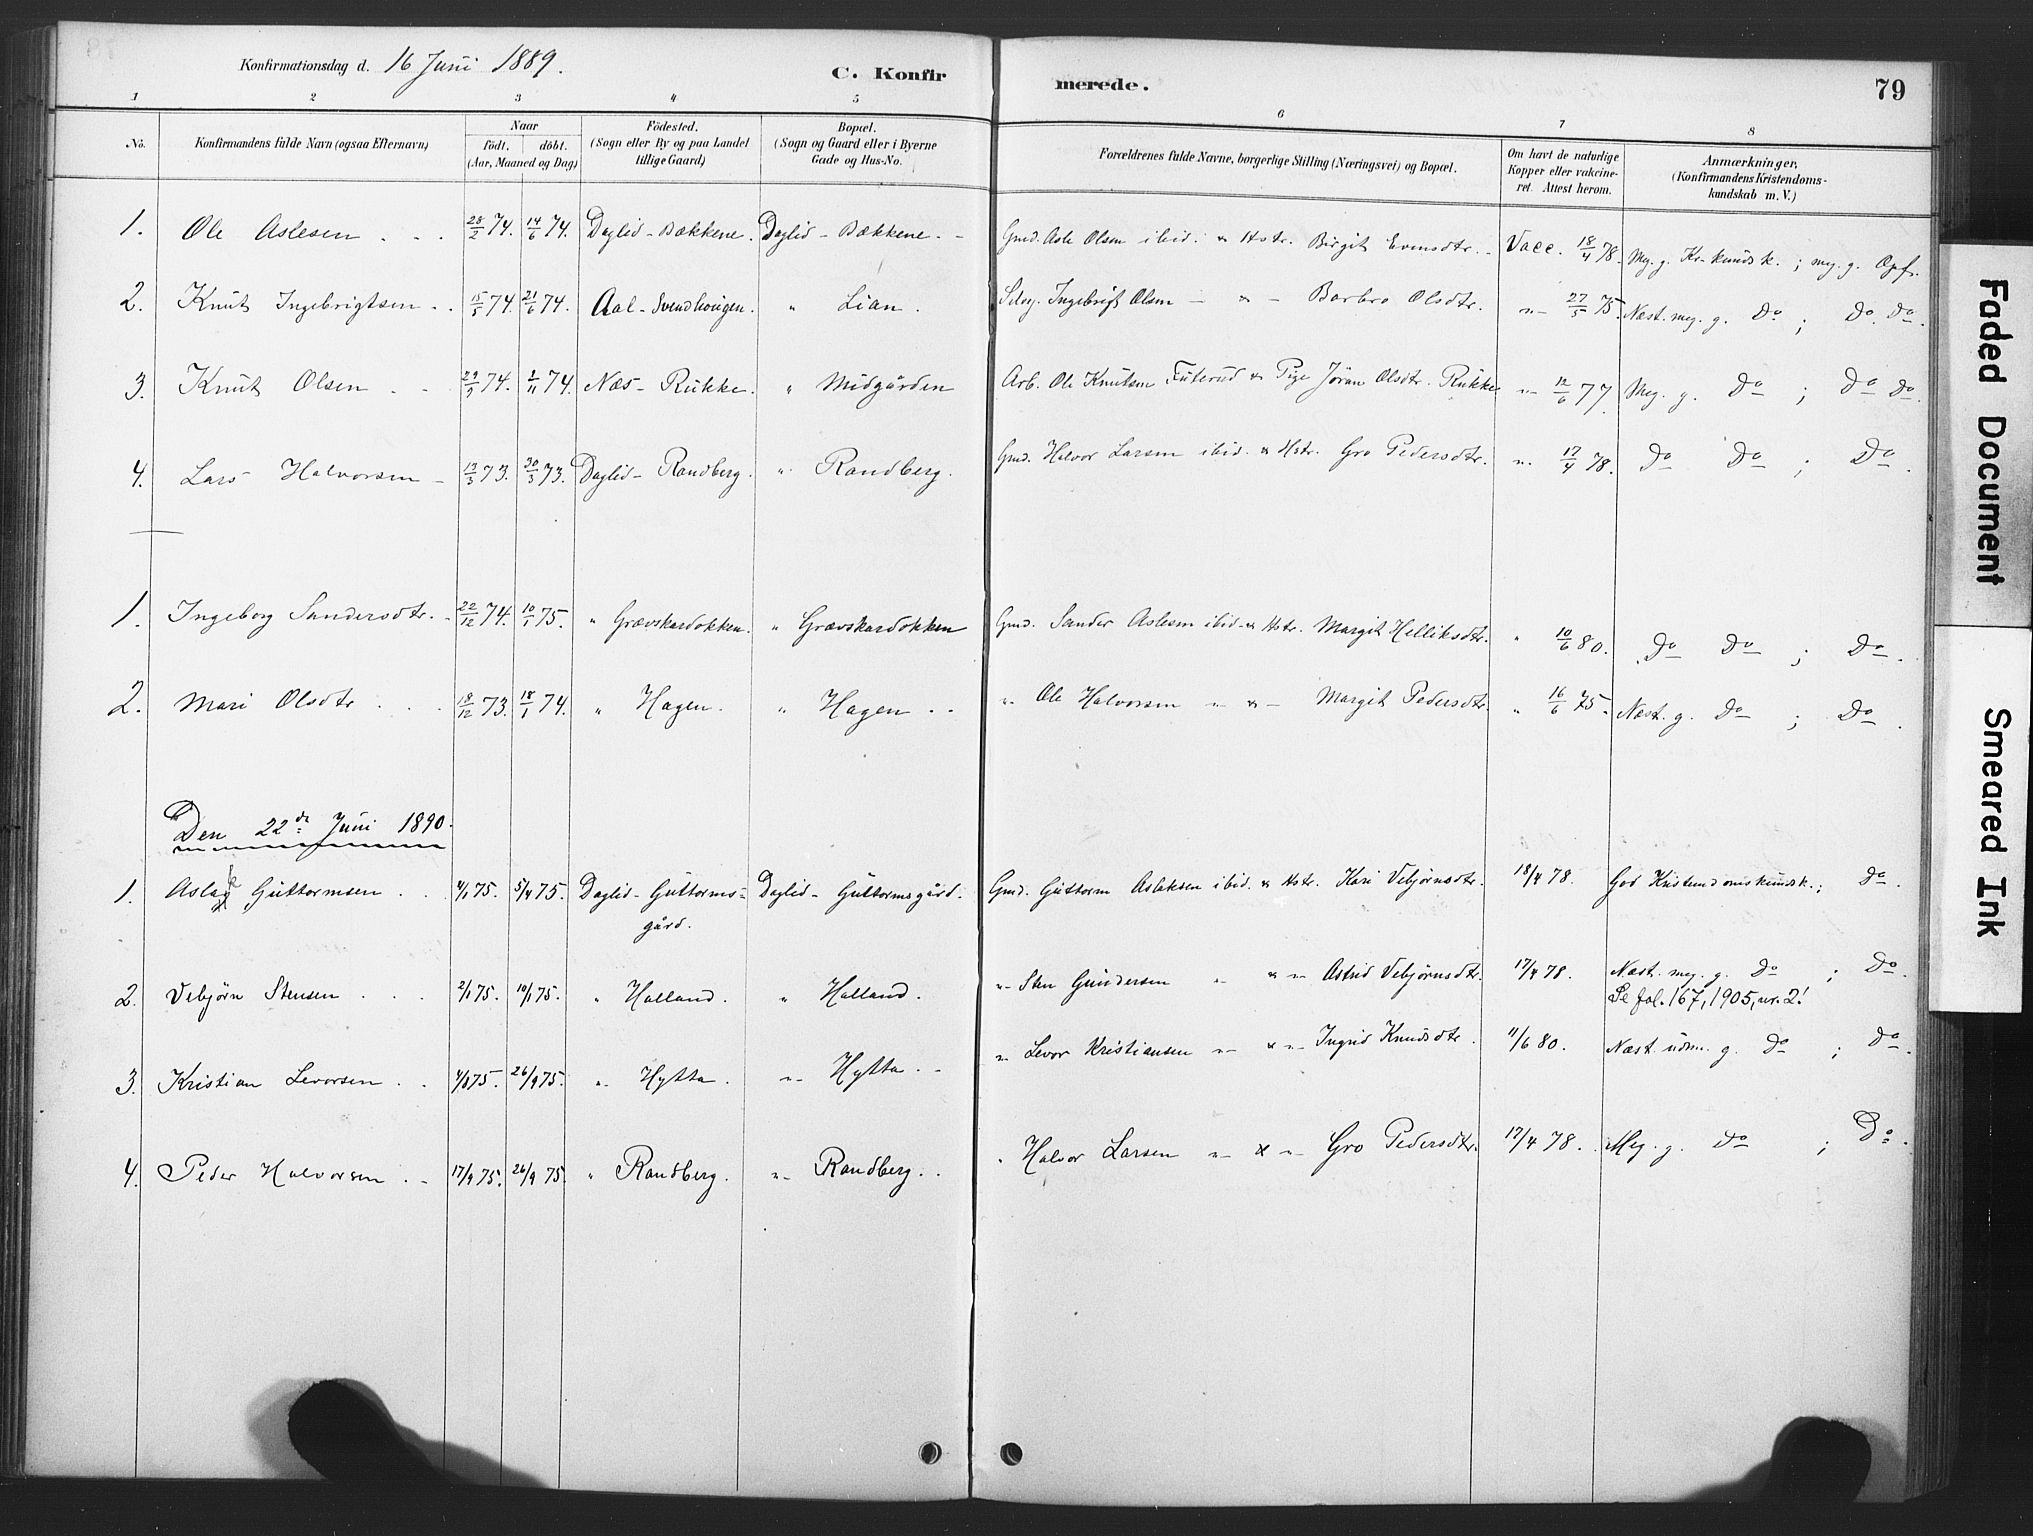 Konfirmationsdag d. 16 Juni 1889.
C. Konfir
merede.
79
1 2 3 4 5 6 7 8
No.
Konfirmandens fulde Navn (ogsaa Efternavn)
Naar
födt. döbt.
(Aar, Maaned og Dag)
Födested.
(Sogn eller By og paa Landet
tillige Gaard)
Bopæl.
(Sogn og Gaard eller i Byerne
Gade og Hus-No.
Forældrenes fulde Navne, borgerlige Stilling (Næringsvei) og Bopæl.
Om havt de naturlige
Kopper eller vakcine-
ret. Attest herom.
Anmærkninger,
(Konfirmandens Kristendoms-
kundskab m. V.)
1. Ole Aslesen . . . 28/2 74. 14/6 74. Daglid - Bækkene. Daglid - Bækkene. - Gmd. Asle Olsen ibid. & Hstr. Birgit Evensdtr. - Vacc. 18/4 78. Meg. g. Kr.kundsk. ; meg. g. Opf.
2. Knut Ingebrigtsen . . 15/5 74. 21/6 74. Aal - Svendhougen. " Lian. Selvej. Ingebrigt Olsen - & - Barbro Olsdtr. "- 27/5 75. Næst. meg. g. Do ; Do. Do.
3. Knut Olsen . . 74. 2/11 74. Næs - Rukke. " Midgården Arb. Ole Knutsen Futerud & Pige Jøran Olsdtr. Rukke "- 12/6 77. Meg. g. Do ; Do Do.
4. Lars Halvorsen - 13/3 73. 30/3 73. Daglid - Randberg. " Randberg. Gmd. Halvor Larsen ibid. & Hstr. Gro Pedersdtr. "- 17/4 78. Do Do ; Do.
1. Ingeborg Sandersdtr. - 22/12 74. 10/1 75. " Grævskardokken. " Grævskardokken Gmd. Sander Aslesen ibid. & Hstr. Margit Helliksdtr. " 10/6 80. Do Do ; Do.
2. Mari Olsdtr . . . 73. 18/1 74. " Hagen. " Hagen . . "- Ole Halvorsen "- & - Margit Pedersdtr. " 16/6 75. Næst. g. Do ; Do.
Den 22de Juni 1890.
1. Aslak Guttormsen . . 4/1 75. 5/4 75. Daglid - Guttorms- Daglid - Guttormsgård. Gmd. Guttorm Aslaksen ibid. & Hstr. Kari Vebjørnsdtr. 18/4 78. God Kristendomskundsk. ; Do.
gård.
2. Vebjørn Stensen . . . 2/1 75. 10/1 75. " Halland. " Halland. "- Sten Gundersen " & "- Astrid Vebjørnsdtr. 17/4 78. Næst. meg. g. Do ; Do.
Se fol. 167, 1905, nr. 2!
3. Kristian Levorsen . . 75. 26/9 75. "- Hytta. "- Hytta. - "- Levor Kristiansen "- & "- Ingrid Knudsdtr. 11/6 80. Næst. udm. g. Do ; Do.
4. Peder Halvorsen . - 17/9 75. 26/9 75. " Randberg. "- Randberg. . " Halvor Larsen "- & "- Gro Pedersdtr. 17/4 78. Meg. g. Do ; Do.
Faded Document
Smeared Ink